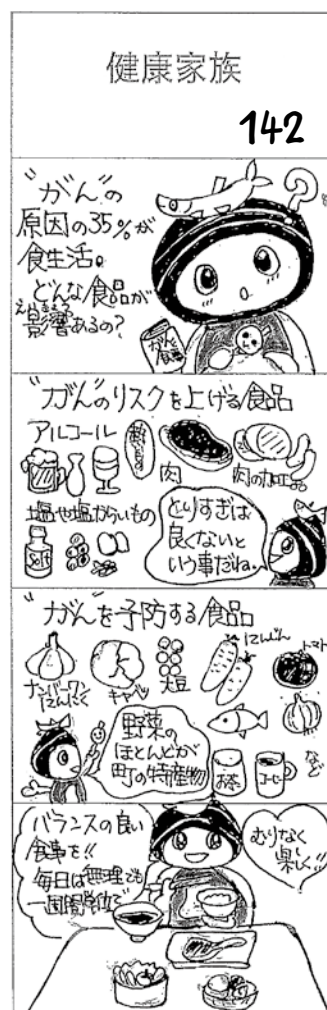 健康家族
142
"がん"の
原因の35%が
食生活。
どんな食品が
えいきょう
影響あるの?
がん
"がん"のリスクを上げる食品
アルコール
肉
肉の加工品
塩や塩からいもの
Solt
とりすぎは
良くないと
いう事だね。
"がん"を予防する食品
ナンバーワン
にんにく
キャベツ
大豆
にんじん
トマト
野菜の
ほとんどが
町の特産物
お茶
コーヒー
など
バランスの良い
食事を!!
毎日は無理でも
一週間単位で
むりなく
楽しく!!